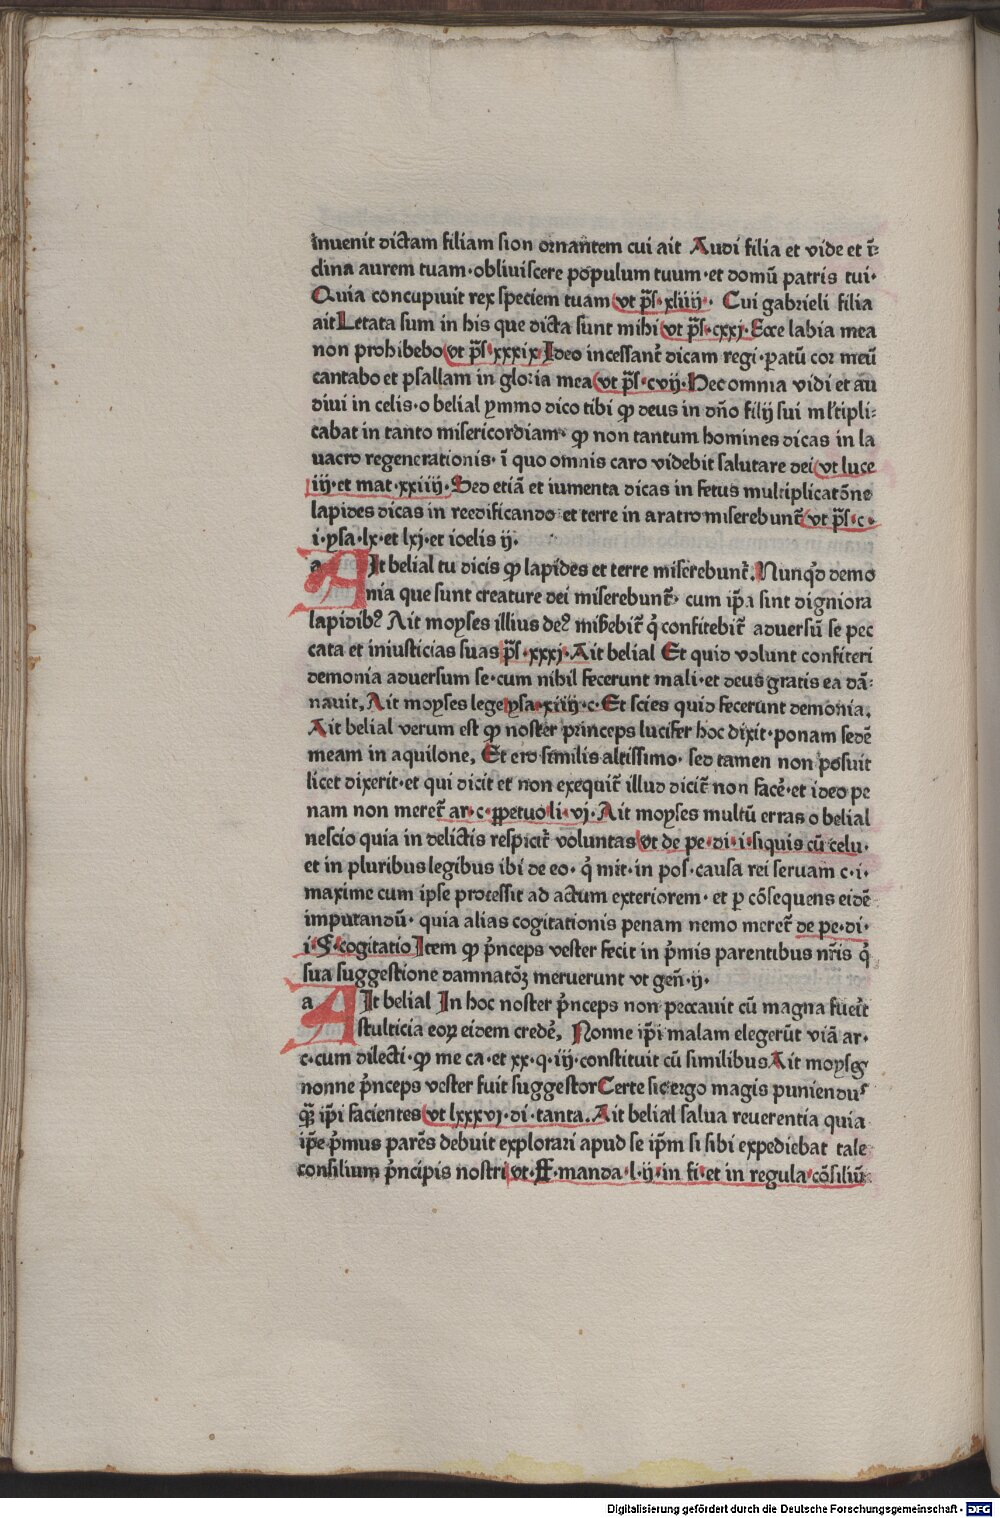 inuenit dictam filiam sion ornantem cui ait Audi filia et vide et ī⸗
clina aurem tuam·obliuiscere populum tuum·et domū patris tui·
Quia concupiuit rex speciem tuam vt p̄s·xliiij· Cui gabrieli filia
ait Letata sum in his que dicta sunt mihi vt p̄s·cxxj·Ecce labia mea
non prohibebo vt p̄s·xxxix Ideo incessant̄ dicam regi·patū cor meū
cantabo et psallam in gloria mea vt p̄s·cvij·Hec omnia vidi et au
diui in celis·o belial ymmo dico tibi ꝙ deus in dño filij sui ml̄tipli⸗
cabat in tanto misericordiam· ꝙ non tantum homines dicas in la
uacro regenerationis· ī quo omnis caro videbit salutare dei vt luce
iij·et mat·xxiiij·Sed etiā et iumenta dicas in fetus multiplicatōne
lapides dicas in reedificando et terre in aratro miserebunt̄ vt p̄s·c·
i·ysa·lx·et lxj·et ioelis ij·
a AIt belial tu dicis ꝙ lapides et terre miserebunt̄.Nunq̄d demo
nia que sunt creature dei miserebunt̄· cum ip̄a sint digniora
lapidibꝰ Ait moyses illius deꝰ miserebit̄ q̇ confitebit̄ aduersū se pec
cata et iniusticias suas p̄s·xxxj·Ait belial Et quid volunt confiteri
demonia aduersum se·cum nihil fecerunt mali·et deus gratis ea dā⸗
nauit. Ait moyses lege ysa·xiiij·c·Et scies quid fecerunt demonia.
Ait belial verum est ꝙ noster princeps lucifer hoc dixit·ponam sedē
meam in aquilone. Et ero similis altissimo· sed tamen non posuit
licet dixerit·et qui dicit et non exequit̄ illud dicit̄ non facē·et ideo pe
nam non meret̄ ar·c·ꝑpetuo li·vj·Ait moyses multū erras o belial
nescio quia in delictis respicit̄ voluntas vt de pe·di·i·siquis cū telu·
et in pluribus legibus ibi de eo· q̇ mit·in pos·causa rei seruam c·i·
maxime cum ipse processit ad actum exteriorem· et ꝑ cōsequens eidē
imputandū· quia alias cogitationis penam nemo meret̄ de pe·di·
i·§·cogitatio Item ꝙ p̄nceps vester fecit in p̄mis parentibus nr̄is q̇
sua suggestione damnatōꝫ meruerunt vt geñ·ij·
a AIt belial In hoc noster p̄nceps non peccauit cū magna fuer̄t
stulticia eoꝝ eidem credē, Nonne ip̄i malam elegerūt viā ar·
c·cum dilecti·ꝙ me ca·et xx·q·iij·constituit cū similibus Ait moyses
nonne p̄nceps vester fuit suggestor Certe sic ergo magis puniendus
q̄ꝫ ip̄i facientes vt lxxxvj·di·tanta. Ait belial salua reuerentia quia
ip̄e p̄mus parēs debuit explorari apud se ip̄m si sibi expediebat tale
consilium p̄ncipis nostri vt·ff·manda·l·ij·in fi·et in regula cōsiliū
Digitalisierung gefördert durch die Deutsche Forschungsgemeinschaft - DFG